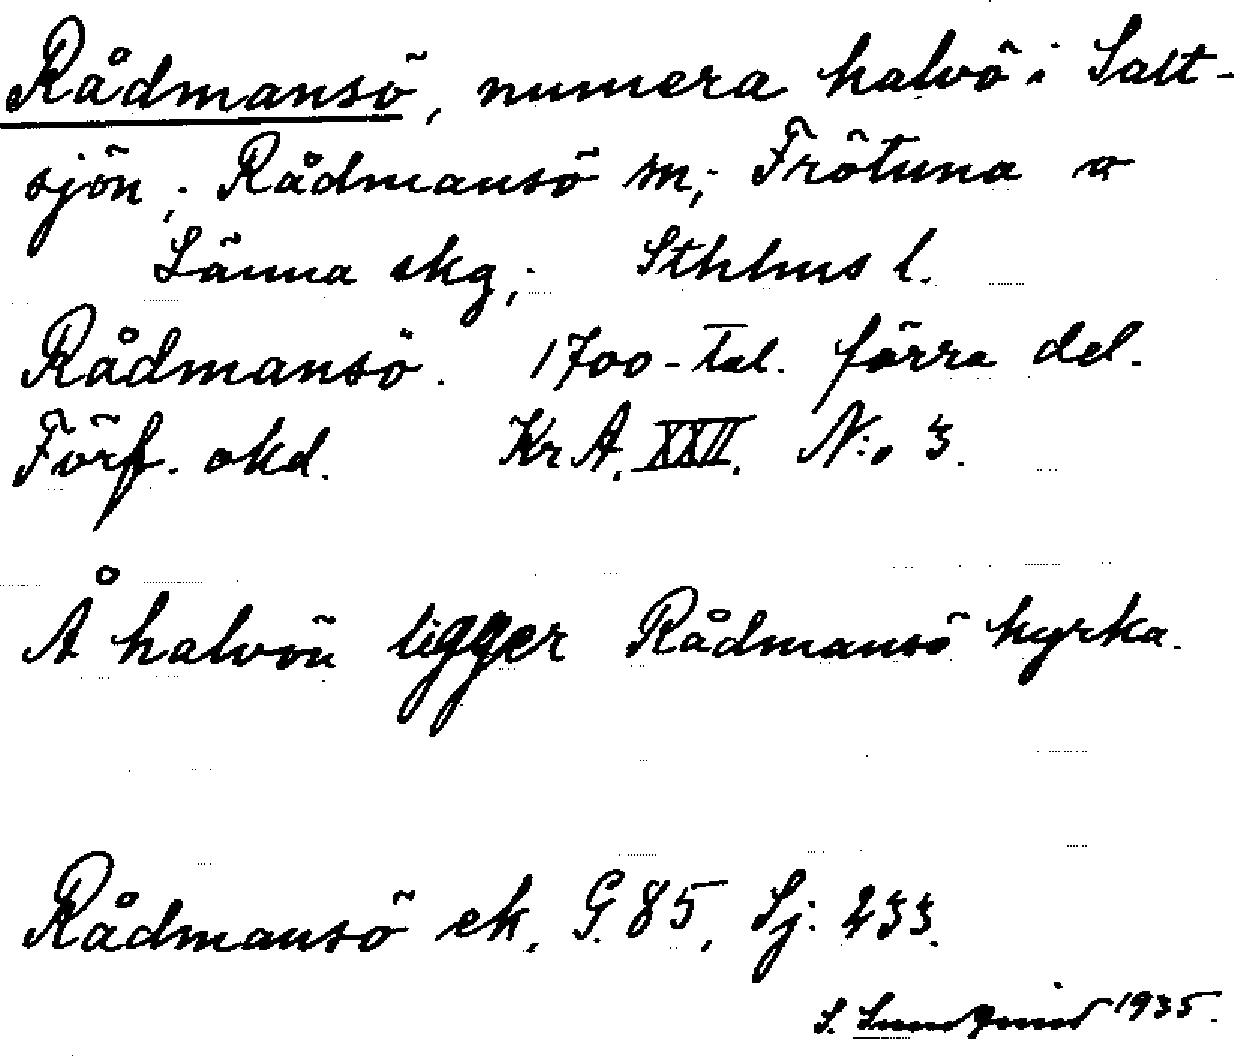 Rådmansö, numera halvö i Salt-
sjön; Rådmansö sn; Frötuna o
Länna skg; Sthlms l.
Rådmansö. 1700-tal. förra del.
Förf. okd. Kr A. XXII. N:o 3.
Å halvön ligger Rådmansö kyrka.
Rådmansö ek. G. 85, Sj: 233.
S. Lundqvist 1935.